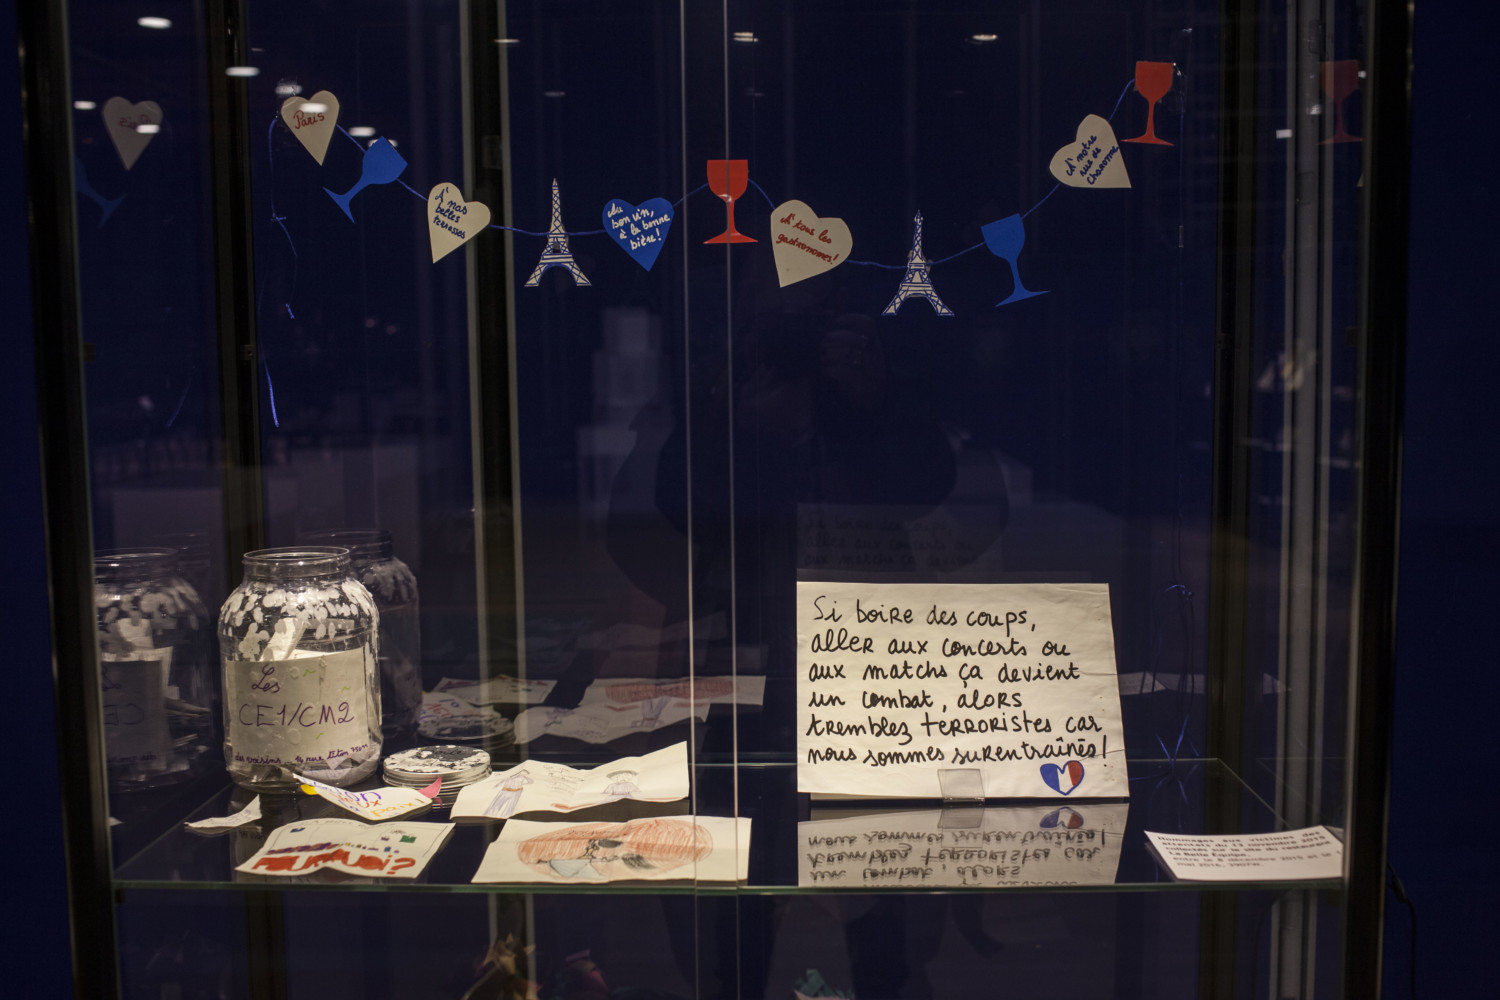 Paris
A' nos
belles
terrasses
Au
bon vin,
à la bonne
bière!
A' tous les
gastronomes!
A' notre
rue de
Charonne
Si boire des coups,
aller aux concerts ou
aux matchs ça devient
un combat, alors
tremblez terroristes car
nous sommes surentraînés!
Les
CE1/CM2
POURQUOI?
Hommages aux victimes des
attentats du 13 novembre 2015
collectés sur le site du restaurant
La Belle Équipe,
entre le 8 décembre 2015 et le
mai 2016.